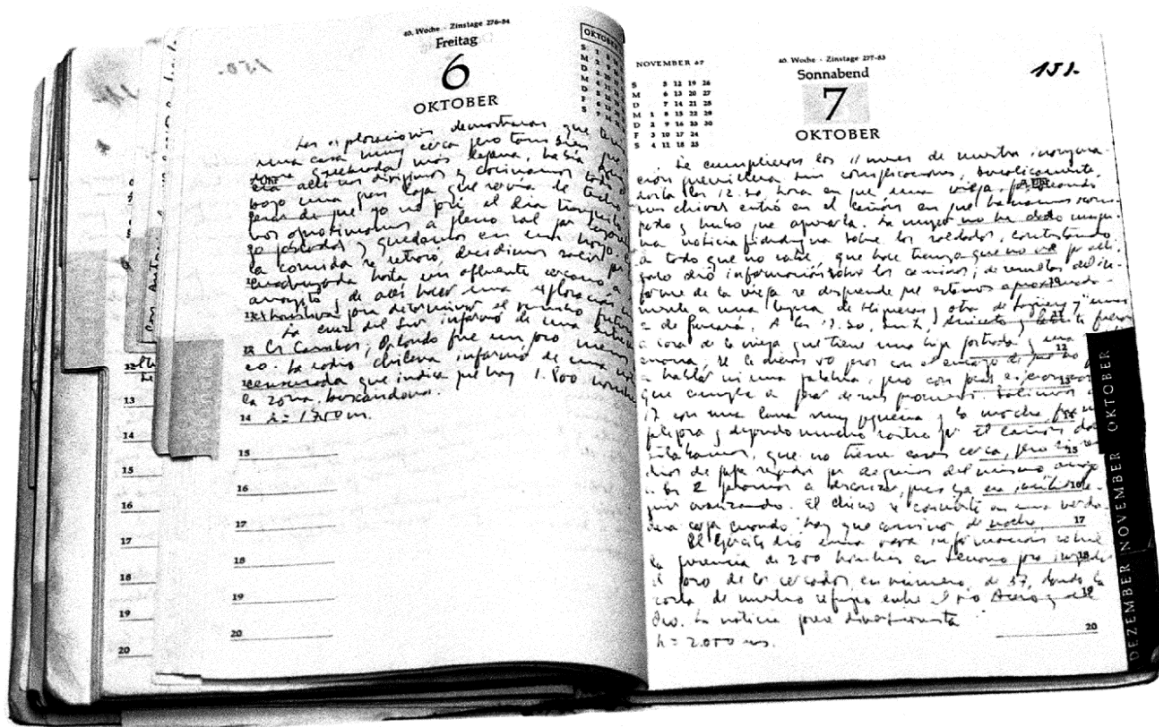 40. Woche · Zinstage 276-84
Freitag
6
OKTOBER
OKTOBER
Las exploraciones demostraron que
una casa muy cerca pero también que
quebrada más lejana, había
allí nos dirigimos y cocinamos todo el
bajo una gran laja que servía de techo
pesar de que yo no pasé el día tranquilo
nos aproximamos a pleno sol por lugares
poblados y quedamos en un hoyo
la comida se retrasó, decidimos salir por
madrugada hasta un afluente cercano a
arroyito y de allí hacer una exploración
exhaustiva para determinar el rumbo futuro
La cruz del Sur informó de una
los Cambas; Orlando fue un poco menos
co. La radio chilena informó de una
censurada que indica que hay 1.800 hombres
la zona buscandonos.
h = 1.750 m.
12
13
14
15
16
17
18
19
20
14
15
16
17
18
19
20
NOVEMBER 67
S 5 12 19 26
M 6 13 20 27
D 7 14 21 28
M 1 8 15 22 29
D 2 9 16 23 30
F 3 10 17 24
S 4 11 18 25
40. Woche · Zinstage 277-83
Sonnabend
7
OKTOBER
151.
Se cumplieron los 11 meses de nuestra inaugura-
ción guerrillera sin complicaciones, bucolicamente,
hasta las 12.30, hora en que una vieja, pastoreando
sus chivas entró en el cañón en que habíamos acam-
pado y hubo que apresarla. La mujer no ha dado ningu-
na noticia fidedigna sobre los soldados, contestando
a todo que no sabe, que hace tiempo que no va por allí.
Sólo dió información sobre los caminos; de resultas del in-
forme de la vieja se desprende que estamos aproximada-
mente a una legua de Higueras y otra de Jagüey y unas
2 de Pucará. A las 17.30, Inti, Aniceto y Pablito fueron
a casa de la vieja que tiene una hija postrada y una
enana; se le dieron 50 pesos con el encargo de que no fuera
a hablar ni una palabra, pero con pocas esperanzas
que cumpla a pesar de sus promesas. Salimos
17 con una luna muy pequeña y la marcha fue muy
fatigosa y dejando mucho rastro por el cañón donde
estábamos, que no tiene casas cerca, pero
de papa regados por acequias del mismo arroyo
las 2 paramos a descansar, pues ya era inútil se-
guir avanzando. El chino se convierte en una verda-
dera carga cuando hay que caminar de noche.
El ejército dió una rara información sobre
la presencia de 250 hombres en Serrano para impedir
el paso de los cercados en número de 37, dando la
zona de nuestro refugio entre el río Acero y el
Oro. La noticia parece diversionista.
h = 2.000 ms.
12
13
15
17
19
20
DEZEMBER NOVEMBER OKTOBER